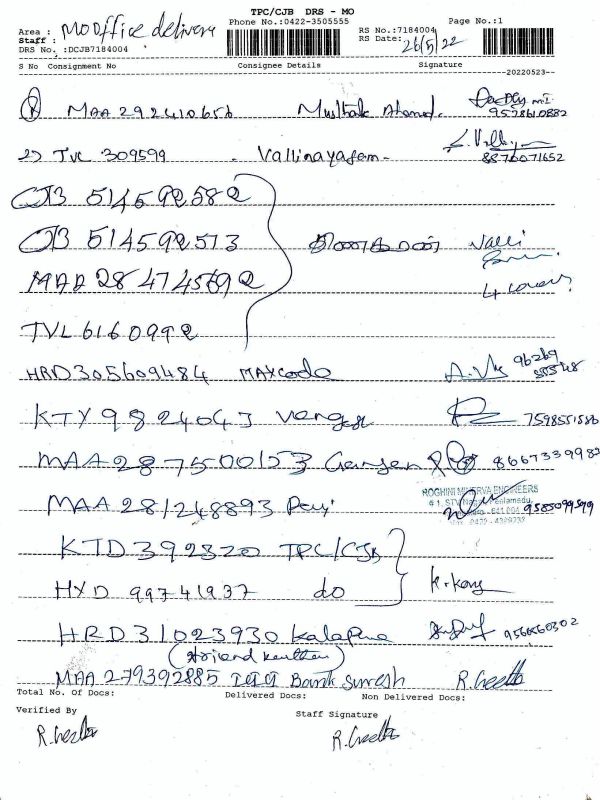 TPC/CJB DRS - MO
Area : MO Office delivery Phone No.:0422-3505555 RS No.:7184004 Page No.:1
Staff : RS Date: 26/5/22
DRS No. :DCJB7184004
S No Consignment No Consignee Details Signature
20220523
① MAA 292410656 Musthak Ahamed. 9578610882
2) TVL 309599 - Vallinayagam - 8870071652
CJB 514592582
CJB 514592573 தினகரன் Valli
MAA 284745692 4 covers
TVL 6160992
HRD 305609484 MAXcode
KTY 9824043 7598551586
MAA 287500153 Ganjen 8667339982
MAA 281248893 ROGHINI MINERVA ENGINEERS
9585099599
KTD 392320 TPC/CJB
HYD 99741937 do
HRD 31023930 Kalapna 9566560302
MAA 279392885 Bank Suresh R.Geetha
Total No. of Docs: Delivered Docs: Non Delivered Docs:
Verified By Staff Signature
R.Geetha R.Geetha